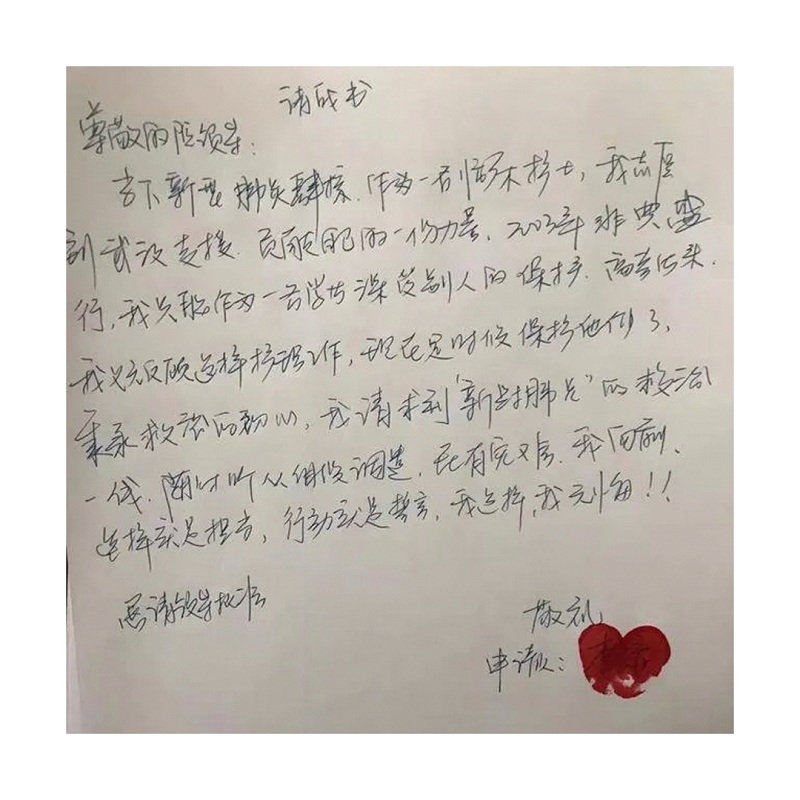 请战书
尊敬的院领导:
当下新型肺炎肆掠.作为一名临床护士,我志愿
到武汉支援.贡献自己的一份力量.2003年非典盛
行,我只能作为一名学生深受别人的保护.高考后来.
我义无反顾选择护理工作,现在是时候保护他们了.
秉承救治的初心,我请求到"新型肺炎"的救治
一线.随时听从组织调遣.无有完又否.我向前.
选择就是担当,行动就是誓言,我选择,我无悔!!
恳请领导批准
敬礼
申请人: